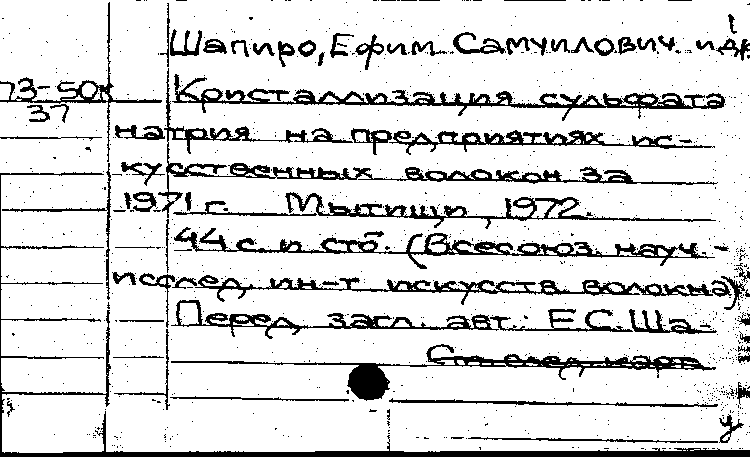 Шапиро, Ефим Самуилович и др.
73-50к
37
Кристаллизация сульфата
натрия на предприятиях ис-
кусственных волокон за
1971 г. Мытищи, 1972.
44 с. и стб. (Всесоюз. науч.-
исслед. ин-т искусств. волокна)
Перед загл. авт.: Е.С. Ша-
См. след. карт.
у